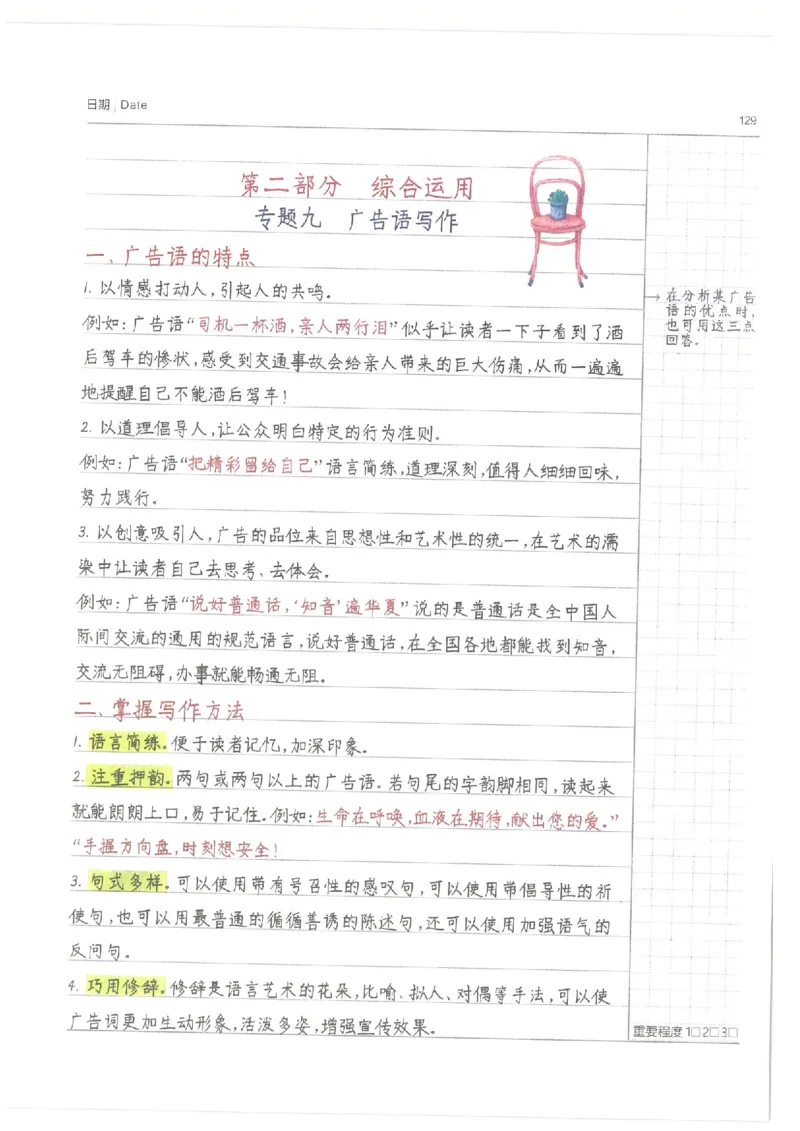 日期 Date
129
第二部分 综合运用
专题九 广告语写作
一、广告语的特点
1. 以情感打动人,引起人的共鸣。
例如:广告语“司机一杯酒,亲人两行泪”似乎让读者一下子看到了酒
后驾车的惨状,感受到交通事故会给亲人带来的巨大伤痛,从而一遍遍
地提醒自己不能酒后驾车!
2. 以道理倡导人,让公众明白特定的行为准则。
例如:广告语“把精彩留给自己”语言简练,道理深刻,值得人细细回味,
努力践行。
3. 以创意吸引人,广告的品位来自思想性和艺术性的统一,在艺术的濡
染中让读者自己去思考、去体会。
例如:广告语“说好普通话,‘知音’遍华夏”说的是普通话是全中国人
际间交流的通用的规范语言,说好普通话,在全国各地都能找到知音,
交流无阻碍,办事就能畅通无阻。
二、掌握写作方法
1. 语言简练。便于读者记忆,加深印象。
2. 注重押韵。两句或两句以上的广告语。若句尾的字韵脚相同,读起来
就能朗朗上口,易于记住。例如:生命在呼唤,血液在期待,献出您的爱。”
“手握方向盘,时刻想安全!
3. 句式多样。可以使用带有号召性的感叹句,可以使用带倡导性的祈
使句,也可以用最普通的循循善诱的陈述句,还可以使用加强语气的
反问句。
4. 巧用修辞。修辞是语言艺术的花朵,比喻、拟人、对偶等手法,可以使
广告词更加生动形象,活泼多姿,增强宣传效果。
→ 在分析某广告
语的优点时,
也可用这三点
回答。
重要程度 1□ 2□ 3□